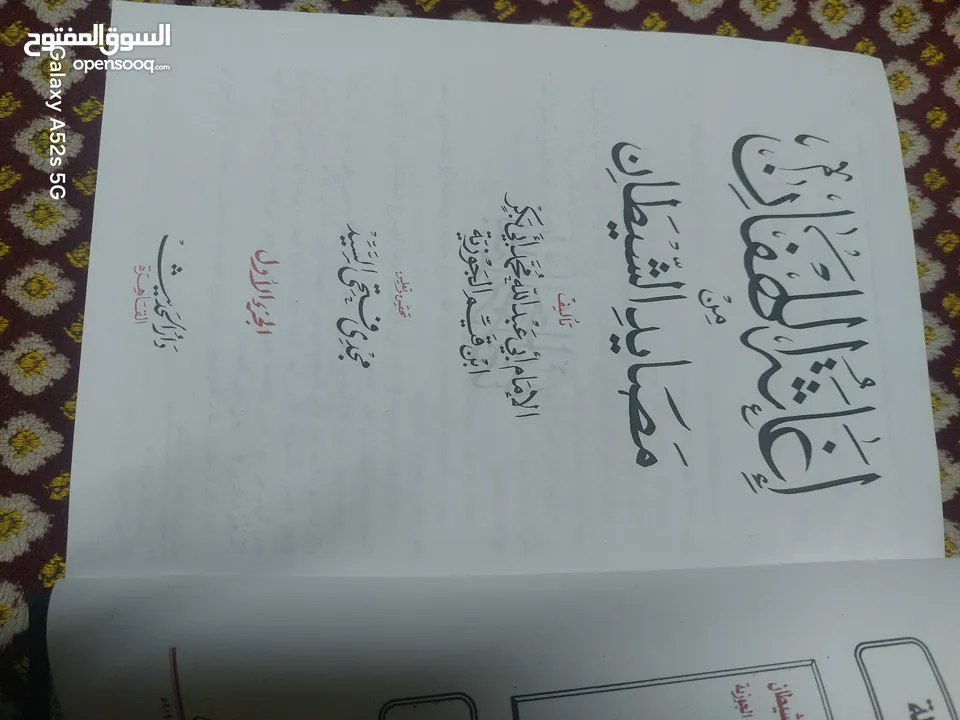 السوق المفتوح
opensooq.com
Galaxy A52s 5G
إِغَاثَةُ اللَّهْفَانِ
مِنْ
مَصَايِدِ الشَّيْطَانِ
تَأليفُ
الإِمَام أَبي عَبْد اللَّه مُحَمَّد أَبي بَكْرٍ
ابْن قَيِّم الجَوْزِيَّة
مَجْدِي فَتْحِي السَّيِّد
الجُزءُ الأَوَّل
دَارُ الحَدِيث
القَاهِرَة